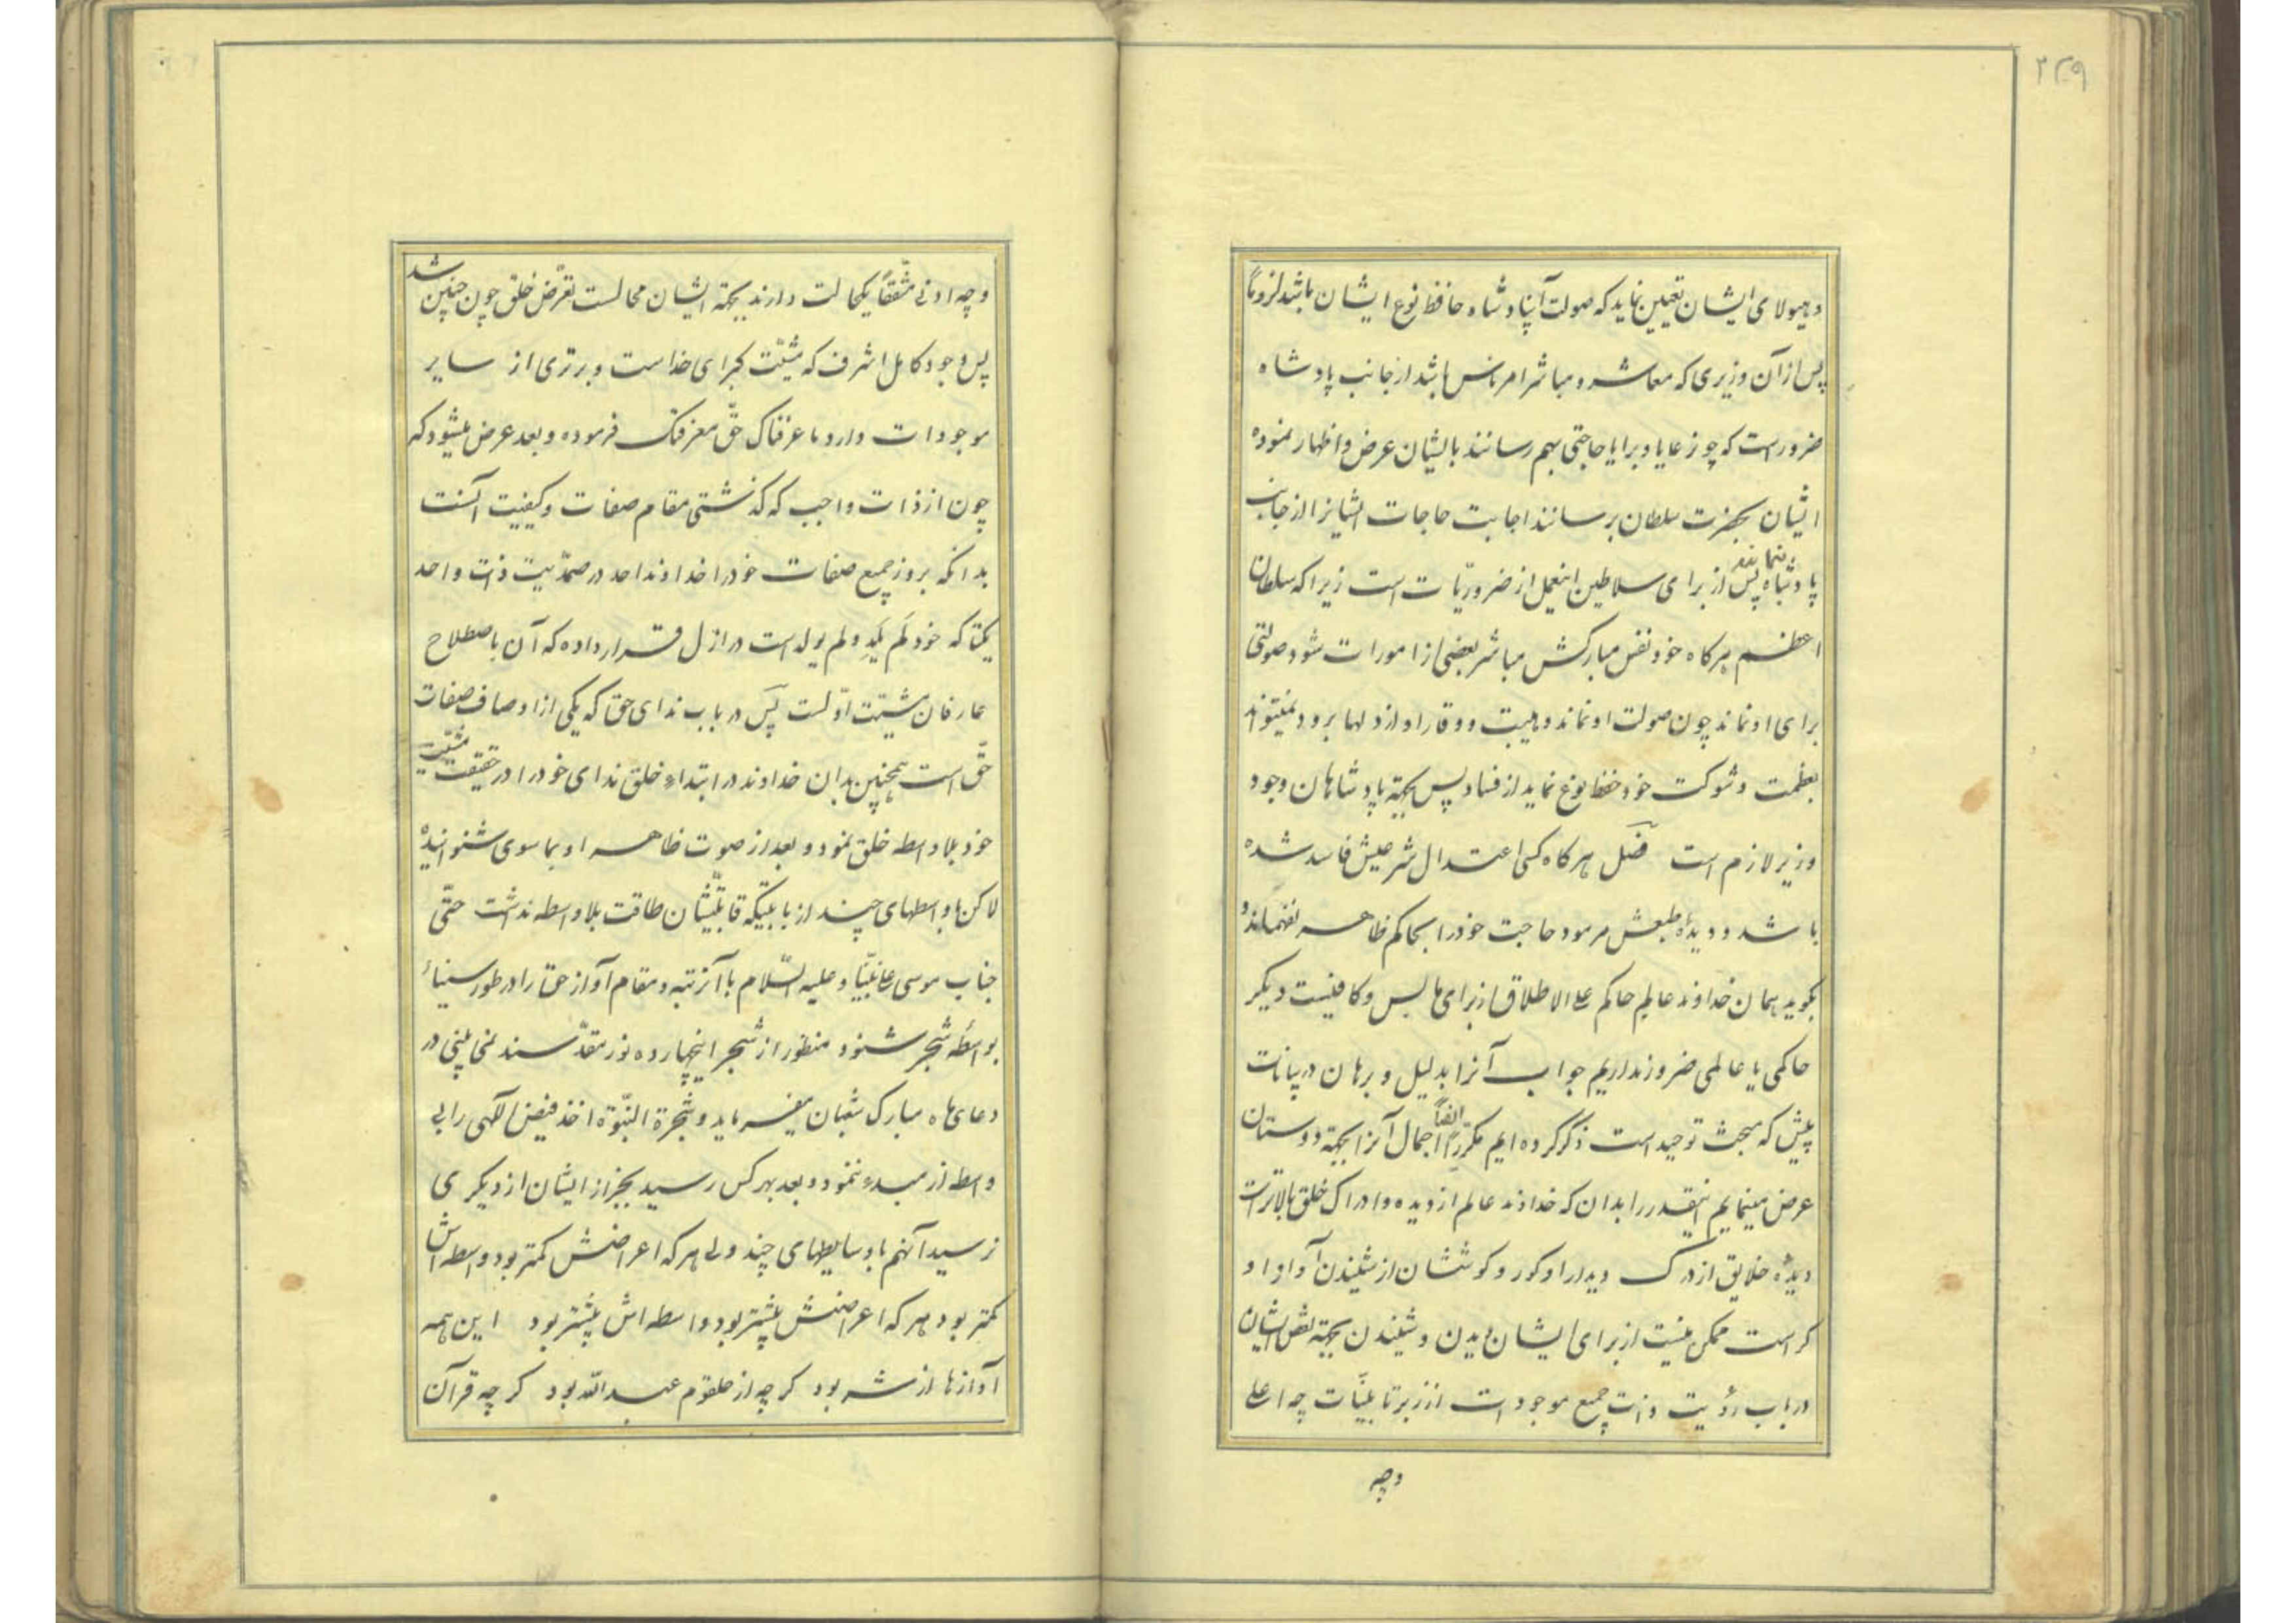 ۲۳۹
و هیولای ایشان تعیین نماید که صولت آن پادشاه حافظ نوع ایشان باشد لزوماً
پس از آن وزیری که معاشر و مباشر امر ناس باشد از جانب پادشاه
ضرور است که چون رعایا و برایا حاجتی بهم رسانند بایشان عرض و اظهار نموده
ایشان بحضرت سلطان برسانند اجابت حاجات ایشانرا از جانب
پادشاه بنمایند پس از برای سلاطین اینعمل از ضروریّات است زیرا که سلطان
اعظم هرکاه خود نفس مبارکش مباشر بعضی از امورات شود صولتی
برای او نماند چون صولت او نماند و هیبت و وقار او از دلها برود نمیتواند
بعظمت و شوکت خود حفظ نوع نماید از فساد پس بجهة پادشاهان وجود
وزیر لازم است فصل هرکاه کسی اعتدال شرعیش فاسد شده
باشد و دیدهٔ طبعش مرمود حاجت خود را بحاکم ظاهر نفهماند و
بکوید همان خداوند عالم حاکم علی الاطلاق از برای ما بس و کافیست دیکر
حاکمی یا عالمی ضرور نداریم جواب آنرا بدلیل و برهان در بیانات
پیش که مبحث توحید است ذکر کرده ایم مکرّراً ایضاً اجمال آنرا بجهة دوستان
عرض مینمایم اینقدر را بدان که خداوند عالم از دیده و ادراک خلق بالاتر است
دیدهٔ خلایق از درک دیدار او کور و کوششان از شنیدن آواز او
کر است ممکن نیست از برای ایشان دیدن و شنیدن بجهة نقص ایشان
در باب رؤیت ذات جمیع موجودات از زبر تا بیّنات چه اعلی
وچه
وچه ادنی متّفقاً یکحالت دارند بجهة ایشان محالست تعرّض خلق چون چنین شد
پس وجود کامل اشرف که مشیّت کبرای خداست و برتری از سایر
موجودات دارد ما عرفناک حقّ معرفتک فرموده و بعد عرض میشود که
چون از ذات واجب که کذشتی مقام صفات و کیفیت آنست
بدانکه بروز جمیع صفات خود را خداوند احد در صمدّیت ذات واحد
یکتا که خود لَم یَلِد و لم یولد است در ازل قرار داده که آن باصطلاح
عارفان مشیّت اوّلست پس در باب ندای حق که یکی از اوصاف صفات
حقّ است همچنین بدان خداوند در ابتداء خلق ندای خود را در حقیقت مشیّت
خود بلاواسطه خلق نمود و بعد از صوت ظاهر او بما سوی شنوانیده
لاکن با واسطهای چند از بابتیکه قابلیّتشان طاقت بلاواسطه نداشت حتّی
جناب موسی علی نبیّنا و علیه السّلام با آنرتبه و مقام آواز حق را در طور سیناء
بواسطهٔ شجر شنود منظور از شجر اینچهارده نور مقدّسند در
دعای ماه مبارک شعبان میفرماید و شجرة النبّوة اخذ فیض الهی را بی
واسطه از مبدء نمود و بعد بهر کس رسید بجز از ایشان از دیکری
نرسید آنهم با وسایطهای چند ولی هر که اعراضش کمتر بود واسطه اش
کمتر بود هر که اعراضش بیشتر بود واسطه اش بیشتر بود این همه
آوازها از شه بود کرچه از حلقوم عبدالله بود کرچه قرآن